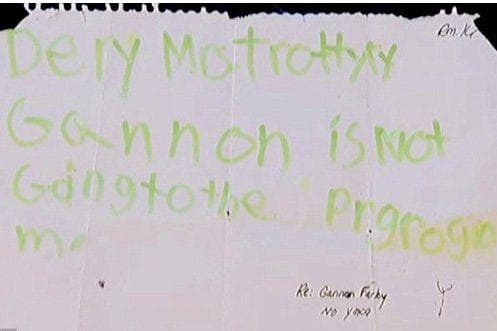 Rm. K
Dery Mstrottyxy
Gannon is Not
Gdingtothe Prgrogin
m
Re: Gannon Farby
NO YOKO